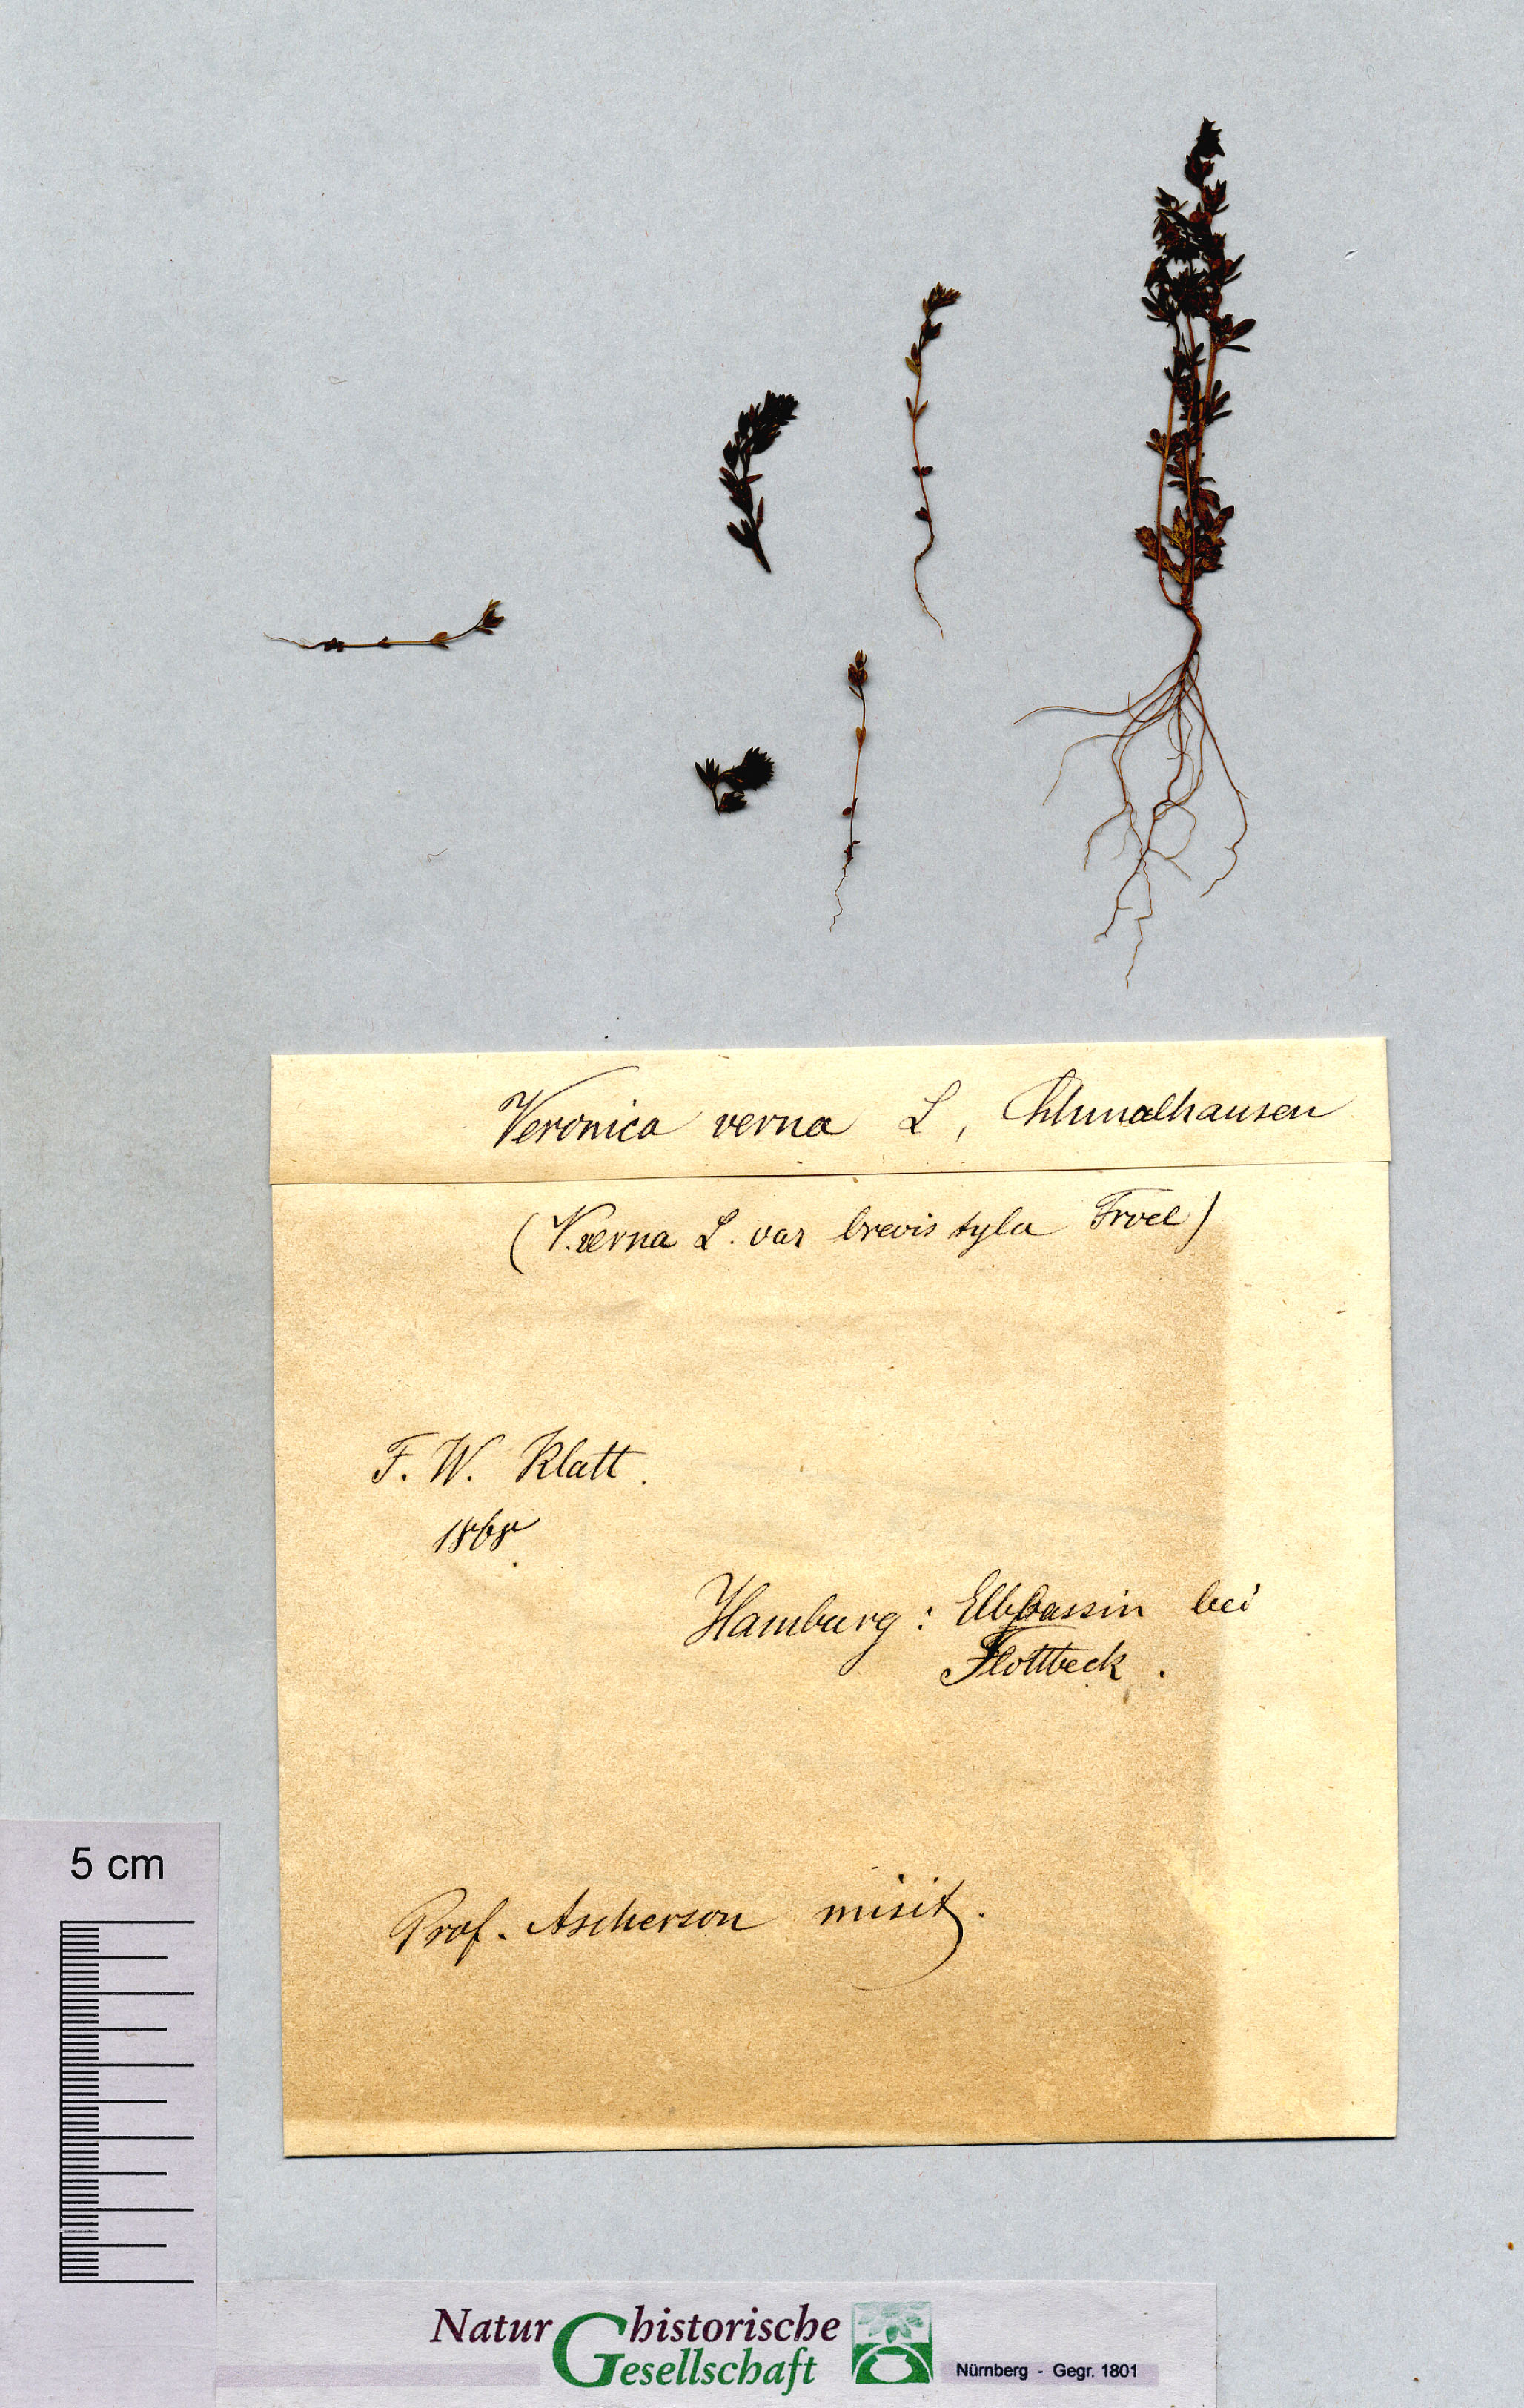 Veronica verna L, Schmalhausen
(V. verna L. var brevis tyla Froel)
F. W. Klatt.
1868.
Hamburg: Elbbassin bei
Flottbeck.
Prof. Ascherson misit.
5 cm
Natur historische
Gesellschaft
Nürnberg - Gegr. 1801